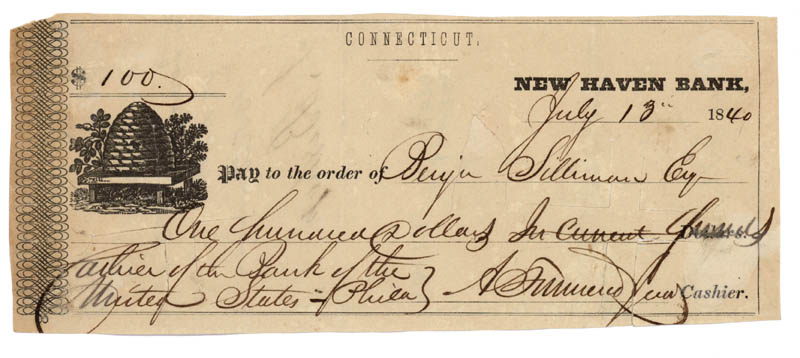 CONNECTICUT.
$ 100.
NEW HAVEN BANK,
July 13" 1840
Pay to the order of Benjn Silliman Esq
One hundred Dollars In Current Funds Dollars.
Cashier of the Bank of the
United States - Phila } A Townsend Jun Cashier.